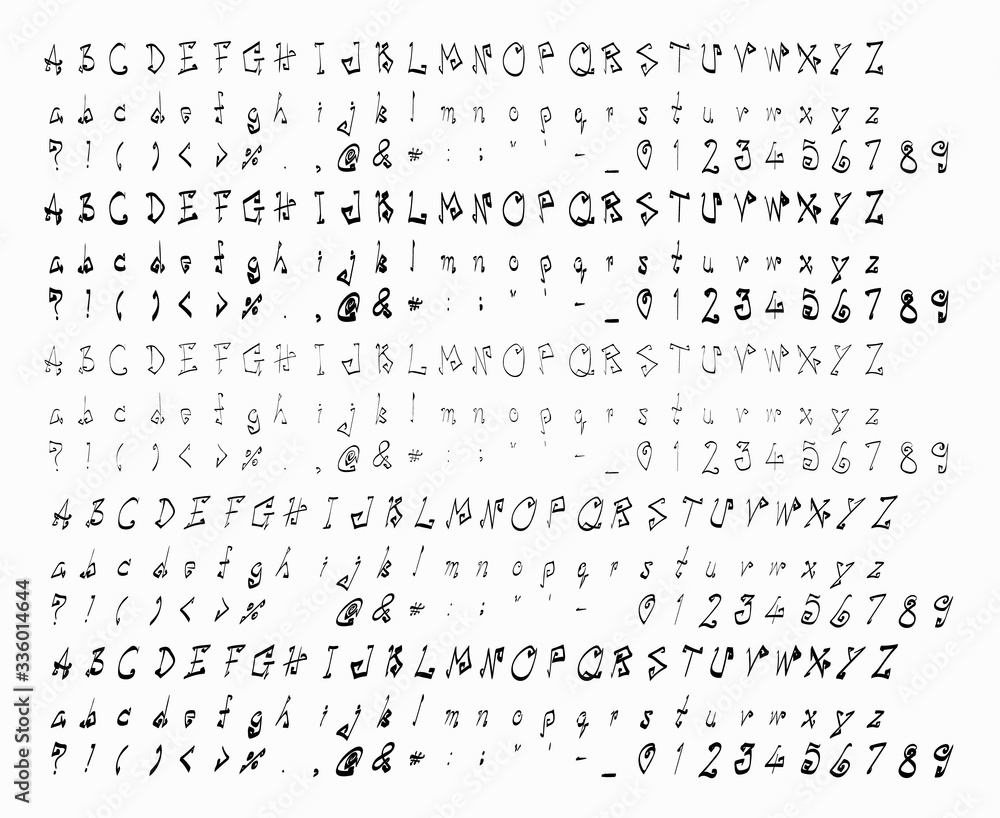 A B C D E F G H I J K L M N O P Q R S T U V W X Y Z
a b c d e f g h i j k l m n o p q r s t u r w x y z
? ! ( ) < > % . , @ & * : ; " ' - _ 0 1 2 3 4 5 6 7 8 9
A B C D E F G H I J K L M N O P Q R S T U V W X Y Z
a b c d e f g h i j k l m n o p q r s t u r w x y z
? ! ( ) < > % . , @ & * : ; " ' - _ 0 1 2 3 4 5 6 7 8 9
A B C D E F G H I J K L M N O P Q R S T U V W X Y Z
a b c d e f g h i j k l m n o p q r s t u r w x y z
? ! ( ) < > % . , @ & * : ; " ' - _ 0 1 2 3 4 5 6 7 8 9
A B C D E F G H I J K L M N O P Q R S T U V W X Y Z
a b c d e f g h i j k l m n o p q r s t u r w x y z
? ! ( ) < > % @ & * : ; " ' - 0 1 2 3 4 5 6 7 8 9
A B C D E F G H I J K L M N O P Q R S T U V W X Y Z
a b c d e f g h i j k l m n o p q r s t u r w x y z
? ! ( ) < > % . , @ & * : ; " ' - _ 0 1 2 3 4 5 6 7 8 9
Adobe Stock | #336014644